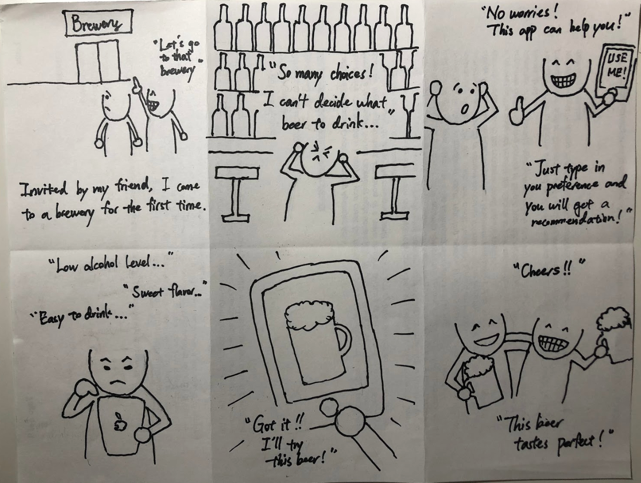 Brewery
"Let's go
to that
brewery"
Invited by my friend, I came
to a brewery for the first time.
"So many choices!
I can't decide what
beer to drink..."
"No worries!
This app can help you!"
USE
ME!
"Just type in
you preference and
you will get a
recommendation!"
"Low alcohol level..."
"Sweet flavor..."
"Easy to drink..."
"Got it!!
I'll try
this beer!"
"Cheers!!"
"This beer
tastes perfect!"